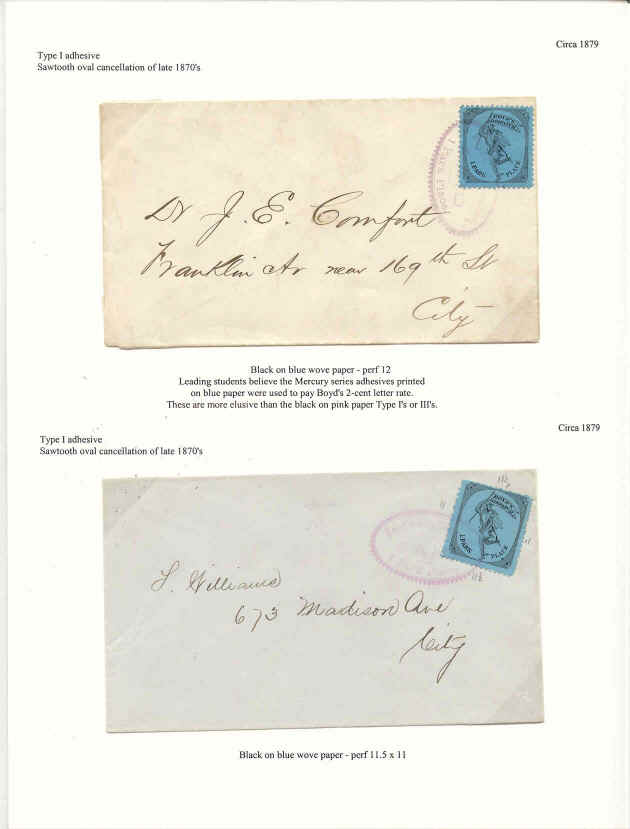 Circa 1879
Type I adhesive
Sawtooth oval cancellation of late 1870's
BOYD'S
1 PARK PLACE
Dr J. E. Comfort
Franklin Av near 169th St
City
Black on blue wove paper - perf 12
Leading students believe the Mercury series adhesives printed
on blue paper were used to pay Boyd's 2-cent letter rate.
These are more elusive than the black on pink paper Type I's or III's.
Circa 1879
Type I adhesive
Sawtooth oval cancellation of late 1870's
11½
11
11
11½
1 PARK
PLACE
Williams
673 Madison Ave
City
Black on blue wove paper - perf 11.5 x 11